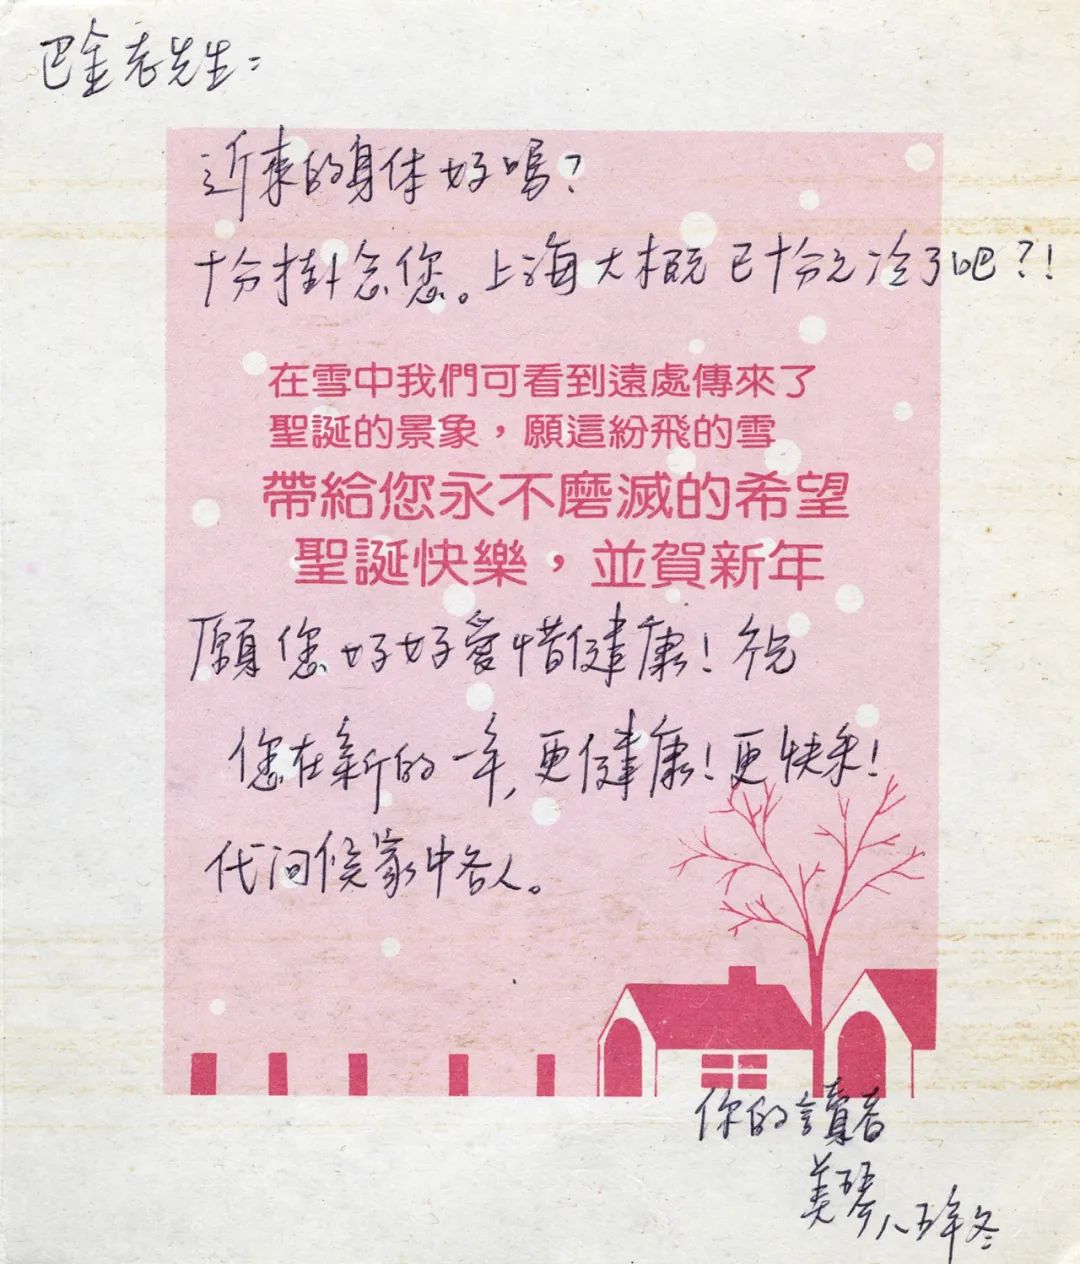 巴金老先生：
近來的身体好嗎？
十分掛念您。上海大概已十分之冷了吧？！
在雪中我們可看到遠處傳來了
聖誕的景象，願這紛飛的雪
帶給您永不磨滅的希望
聖誕快樂，並賀新年
願您好好愛惜健康！祝
您在新的一年，更健康！更快乐！
代问候家中各人。
你的讀者
美琴八五年冬